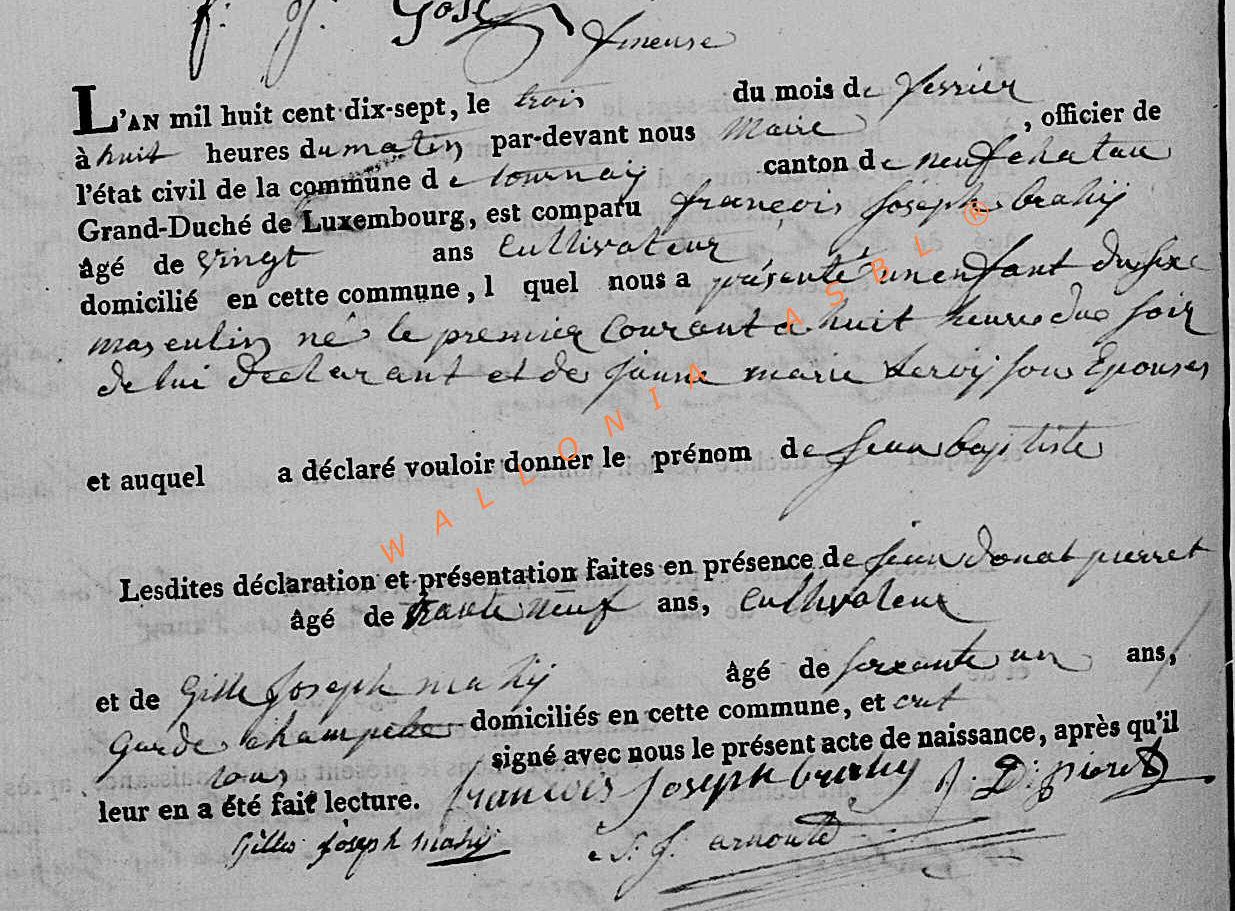 f. J. Gose
fineuse
L'AN mil huit cent dix-sept, le trois du mois de fevrier
à huit heures du matin par-devant nous Maire , officier de
l'état civil de la commune de tournay canton de neufchatau
Grand-Duché de Luxembourg, est comparu francois Joseph brahy
âgé de vingt ans Cultivateur
domicilié en cette commune, l quel nous a présenté un enfant du sixe
masculin né le premier Courant a huit heures du soir
de lui declarant et de jeanne marie son Epouses
et auquel a déclaré vouloir donner le prénom de jean baptiste
Lesdites déclaration et présentation faites en présence de jean donat pierret
âgé de trante neuf ans, cultivateur
et de Gille Joseph mahy âgé de soixante un ans,
Garde champetre domiciliés en cette commune, et ont
tous signé avec nous le présent acte de naissance, après qu'il
leur en a été fait lecture. francois Joseph brahy J. D. pieret
Gilles joseph mahy J. arnould
WALLONIA ASBL ®